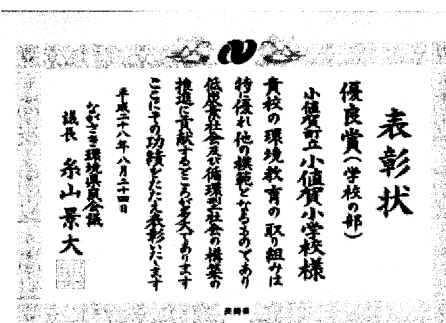 表彰状
優良賞(学校の部)
小値賀町立小値賀小学校様
貴校の環境教育の取り組みは
特に優れ他の模範となるものであり
低炭素社会及び循環型社会の構築の
推進に貢献するところが多大であります
ここにその功績をたたえ表彰いたします
平成二十八年八月二十四日
ながさき環境県民会議
議長 糸山景大
長崎県